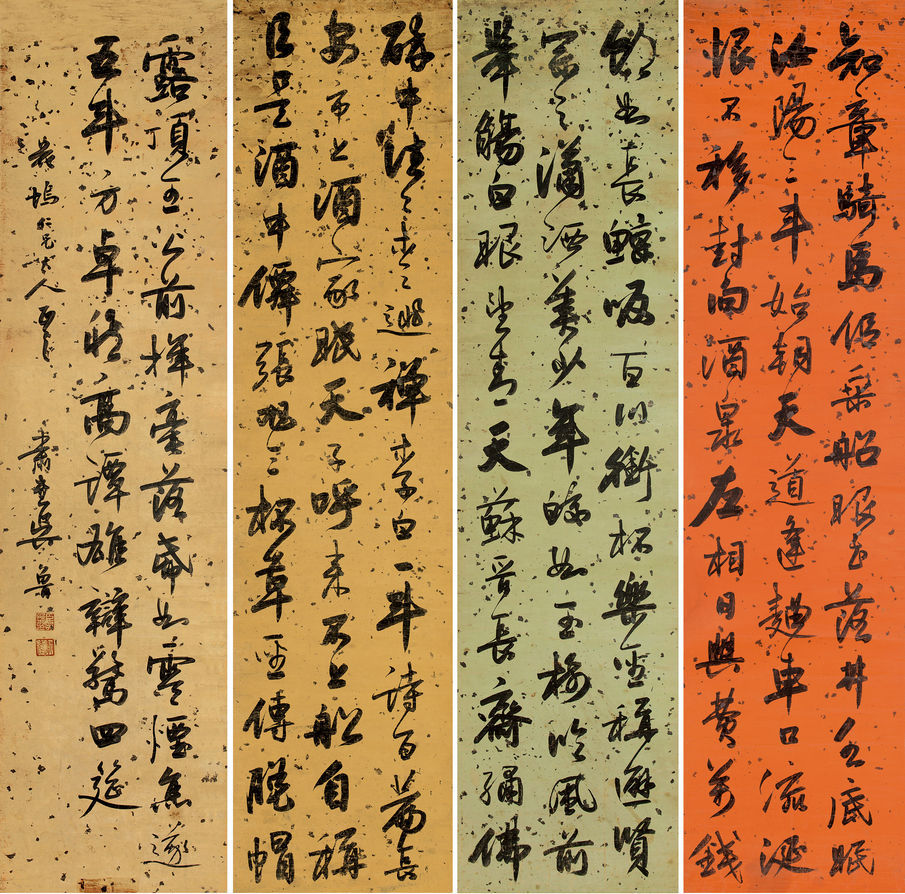 知章騎馬似乘船眼花落井水底眠
汝陽三斗始朝天道逢麯車口流涎
恨不移封向酒泉左相日興費萬錢
飲如長鯨吸百川銜杯樂聖稱避賢
宗之瀟洒美少年皎如玉樹臨風前
舉觴白眼望青天蘇晉長齋繡佛
醉中往往愛逃禪李白一斗詩百篇長
安市上酒家眠天子呼來不上船自稱
臣是酒中僊張旭三杯草聖傳脫帽
露頂王公前揮毫落紙如雲煙焦遂
五斗方卓然高譚雄辯驚四筵
塢仁兄大人正之
肅堂吳魯